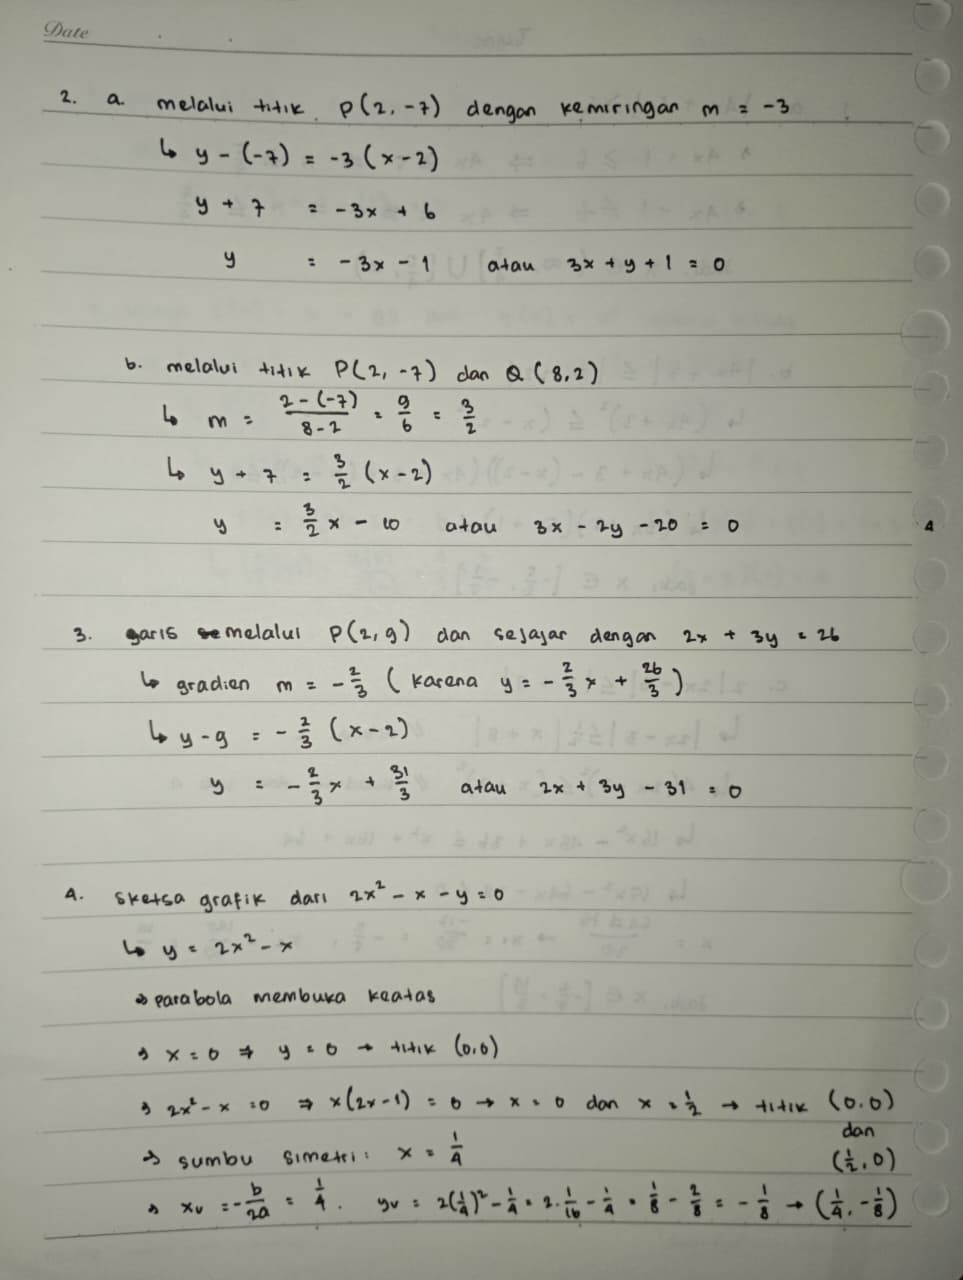 Date
2. a. melalui titik P(2, -7) dengan kemiringan m = -3
↳ y - (-7) = -3 (x - 2)
y + 7 = -3x + 6
y = -3x - 1 atau 3x + y + 1 = 0
b. melalui titik P(2, -7) dan Q (8, 2)
↳ m = (2 - (-7))/(8 - 2) = 9/6 = 3/2
↳ y + 7 = 3/2 (x - 2)
y = 3/2 x - 10 atau 3x - 2y - 20 = 0
3. garis melalui P(2, 9) dan sejajar dengan 2x + 3y = 26
↳ gradien m = -2/3 ( karena y = -2/3 x + 26/3 )
↳ y - 9 = -2/3 (x - 2)
y = -2/3 x + 31/3 atau 2x + 3y - 31 = 0
4. Sketsa grafik dari 2x² - x - y = 0
↳ y = 2x² - x
→ parabola membuka keatas
→ x = 0 ⇒ y = 0 → titik (0,0)
→ 2x² - x = 0 ⇒ x(2x - 1) = 0 → x = 0 dan x = 1/2 → titik (0,0)
dan
(1/2, 0)
→ sumbu simetri : x = 1/4
→ xv = -b/2a = 1/4. yv = 2(1/4)² - 1/4 = 2 . 1/16 - 1/4 = 1/8 - 2/8 = -1/8 → (1/4, -1/8)